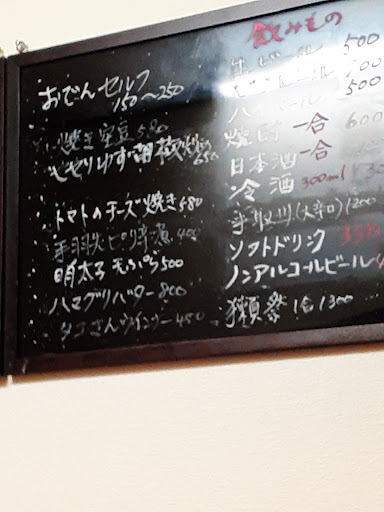 おでんセルフ
150〜250
焼き空豆 580
せせりゆず胡椒焼 650
トマトのチーズ焼き 480
手羽先ピリ辛煮 400
明太子天ぷら 500
ハマグリバター 800
タコさんウインナー 450
飲みもの
生ビール 500
ビール 700
ハイボール 500
焼酎 一合 600
日本酒 一合
冷酒 300ml
手取川(大辛口) 1200
ソフトドリンク 350
ノンアルコールビール
獺祭 1合 1300